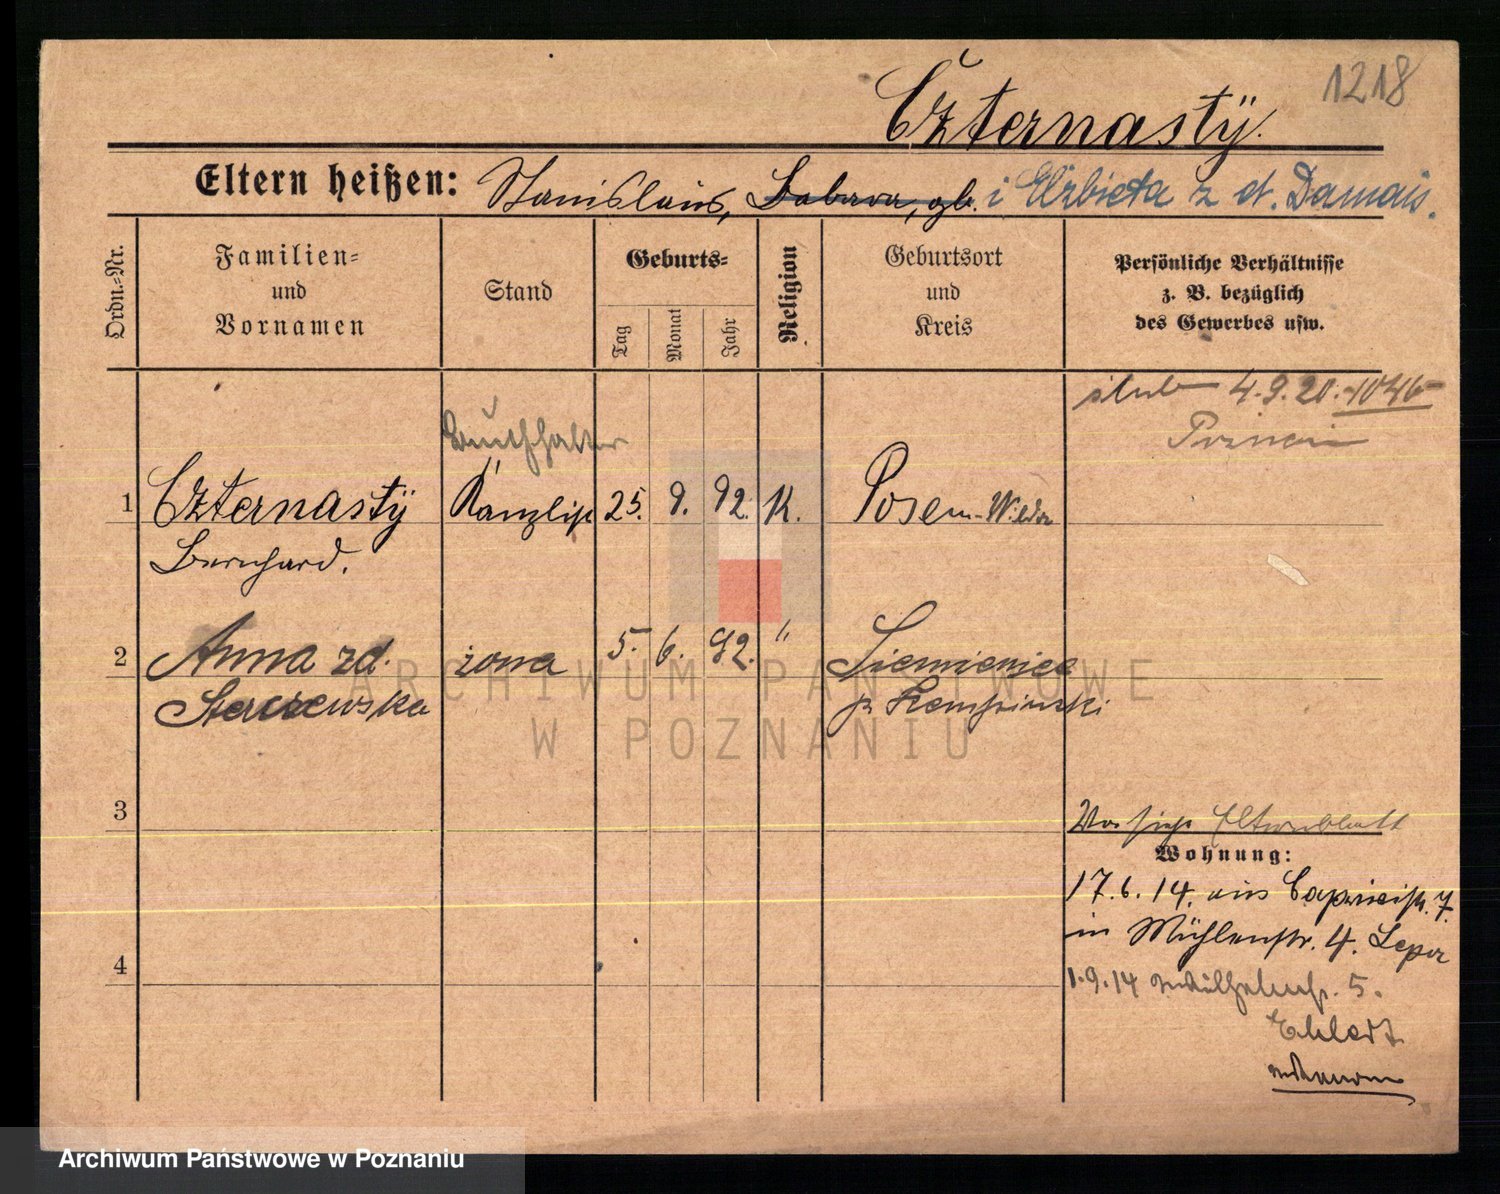 1218
Czternastÿ.
Eltern heißen: Stanislaus, Barbara, gb. i Elżbieta z d. Damais.
Ordn.-Nr.
Familien-
und
Vornamen
Stand
Geburts-
Tag
Monat
Jahr
Religion
Geburtsort
und
Kreis
Persönliche Verhältnisse
z. B. bezüglich
des Gewerbes usw.
ślub 4.9.20. 1046
Poznań
Buchhalter
1 Czternastÿ Kanzlist 25. 9. 92. K. Posen-Wilda
Bernhard.
2 Anna zd. żona 5. 6. 92. " Siemienice
p. Kempiński
3
Vor siehe Elternblatt
Wohnung:
17.6.14. aus Caprivistr. 7.
in Mühlenstr. 4.
4
1.9.14 5.
ARCHIWUM PAŃSTWOWE
W POZNANIU
Archiwum Państwowe w Poznaniu